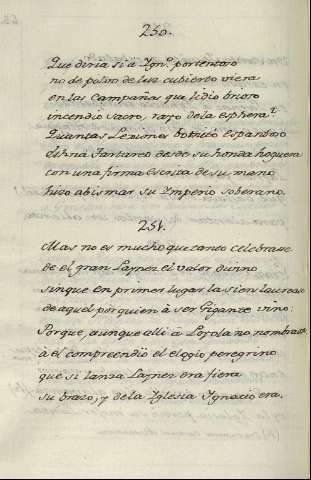 250.
Que diria si a Ign.º portentoso
no de polvo de luz cubierto viera
en las Campañas que lidio brioso
incendio sacro, rayo de la esphera?
Quantas Lexiones
desde su honda hoguera
con una firma Escrita de su mano
hizo abismar su Imperio soberano.
251.
Mas no es mucho que tanto celebrasse
de el gran Laynez el valor divino
sin que en primer lugar la sien laurease
de aquel por quien à ser Gigante vino:
Porque, aunque alli à Loyola no nombrase
à el comprendiò el elogio peregrino
que si lanza Laynez era fiera
su brazo, y de la Iglesia Ignacio era.